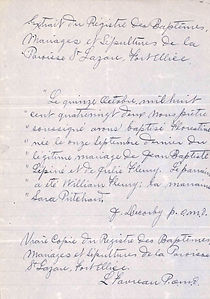 Extrait du Registre des Baptêmes,
Mariages et Sépultures de la
Paroisse St Lazare, Fort Ellice
"Le quinze Octobre, mil huit
cent quatre vingt douze nous prêtre
soussigné avons baptisé Florestine
née le onze Septembre dernier du
légitime mariage de Jean Baptiste
Lépine et de Julie Henry. Le parrain
a été William Henry; la marraine
Sara Pritchard.
J. Decorby p.o.m.i.
Vraie Copie du Registre des Baptêmes
Mariages et Sépultures de la Paroisse
St Lazare, Fort Ellice.
L. Favreau P.o.m.i.